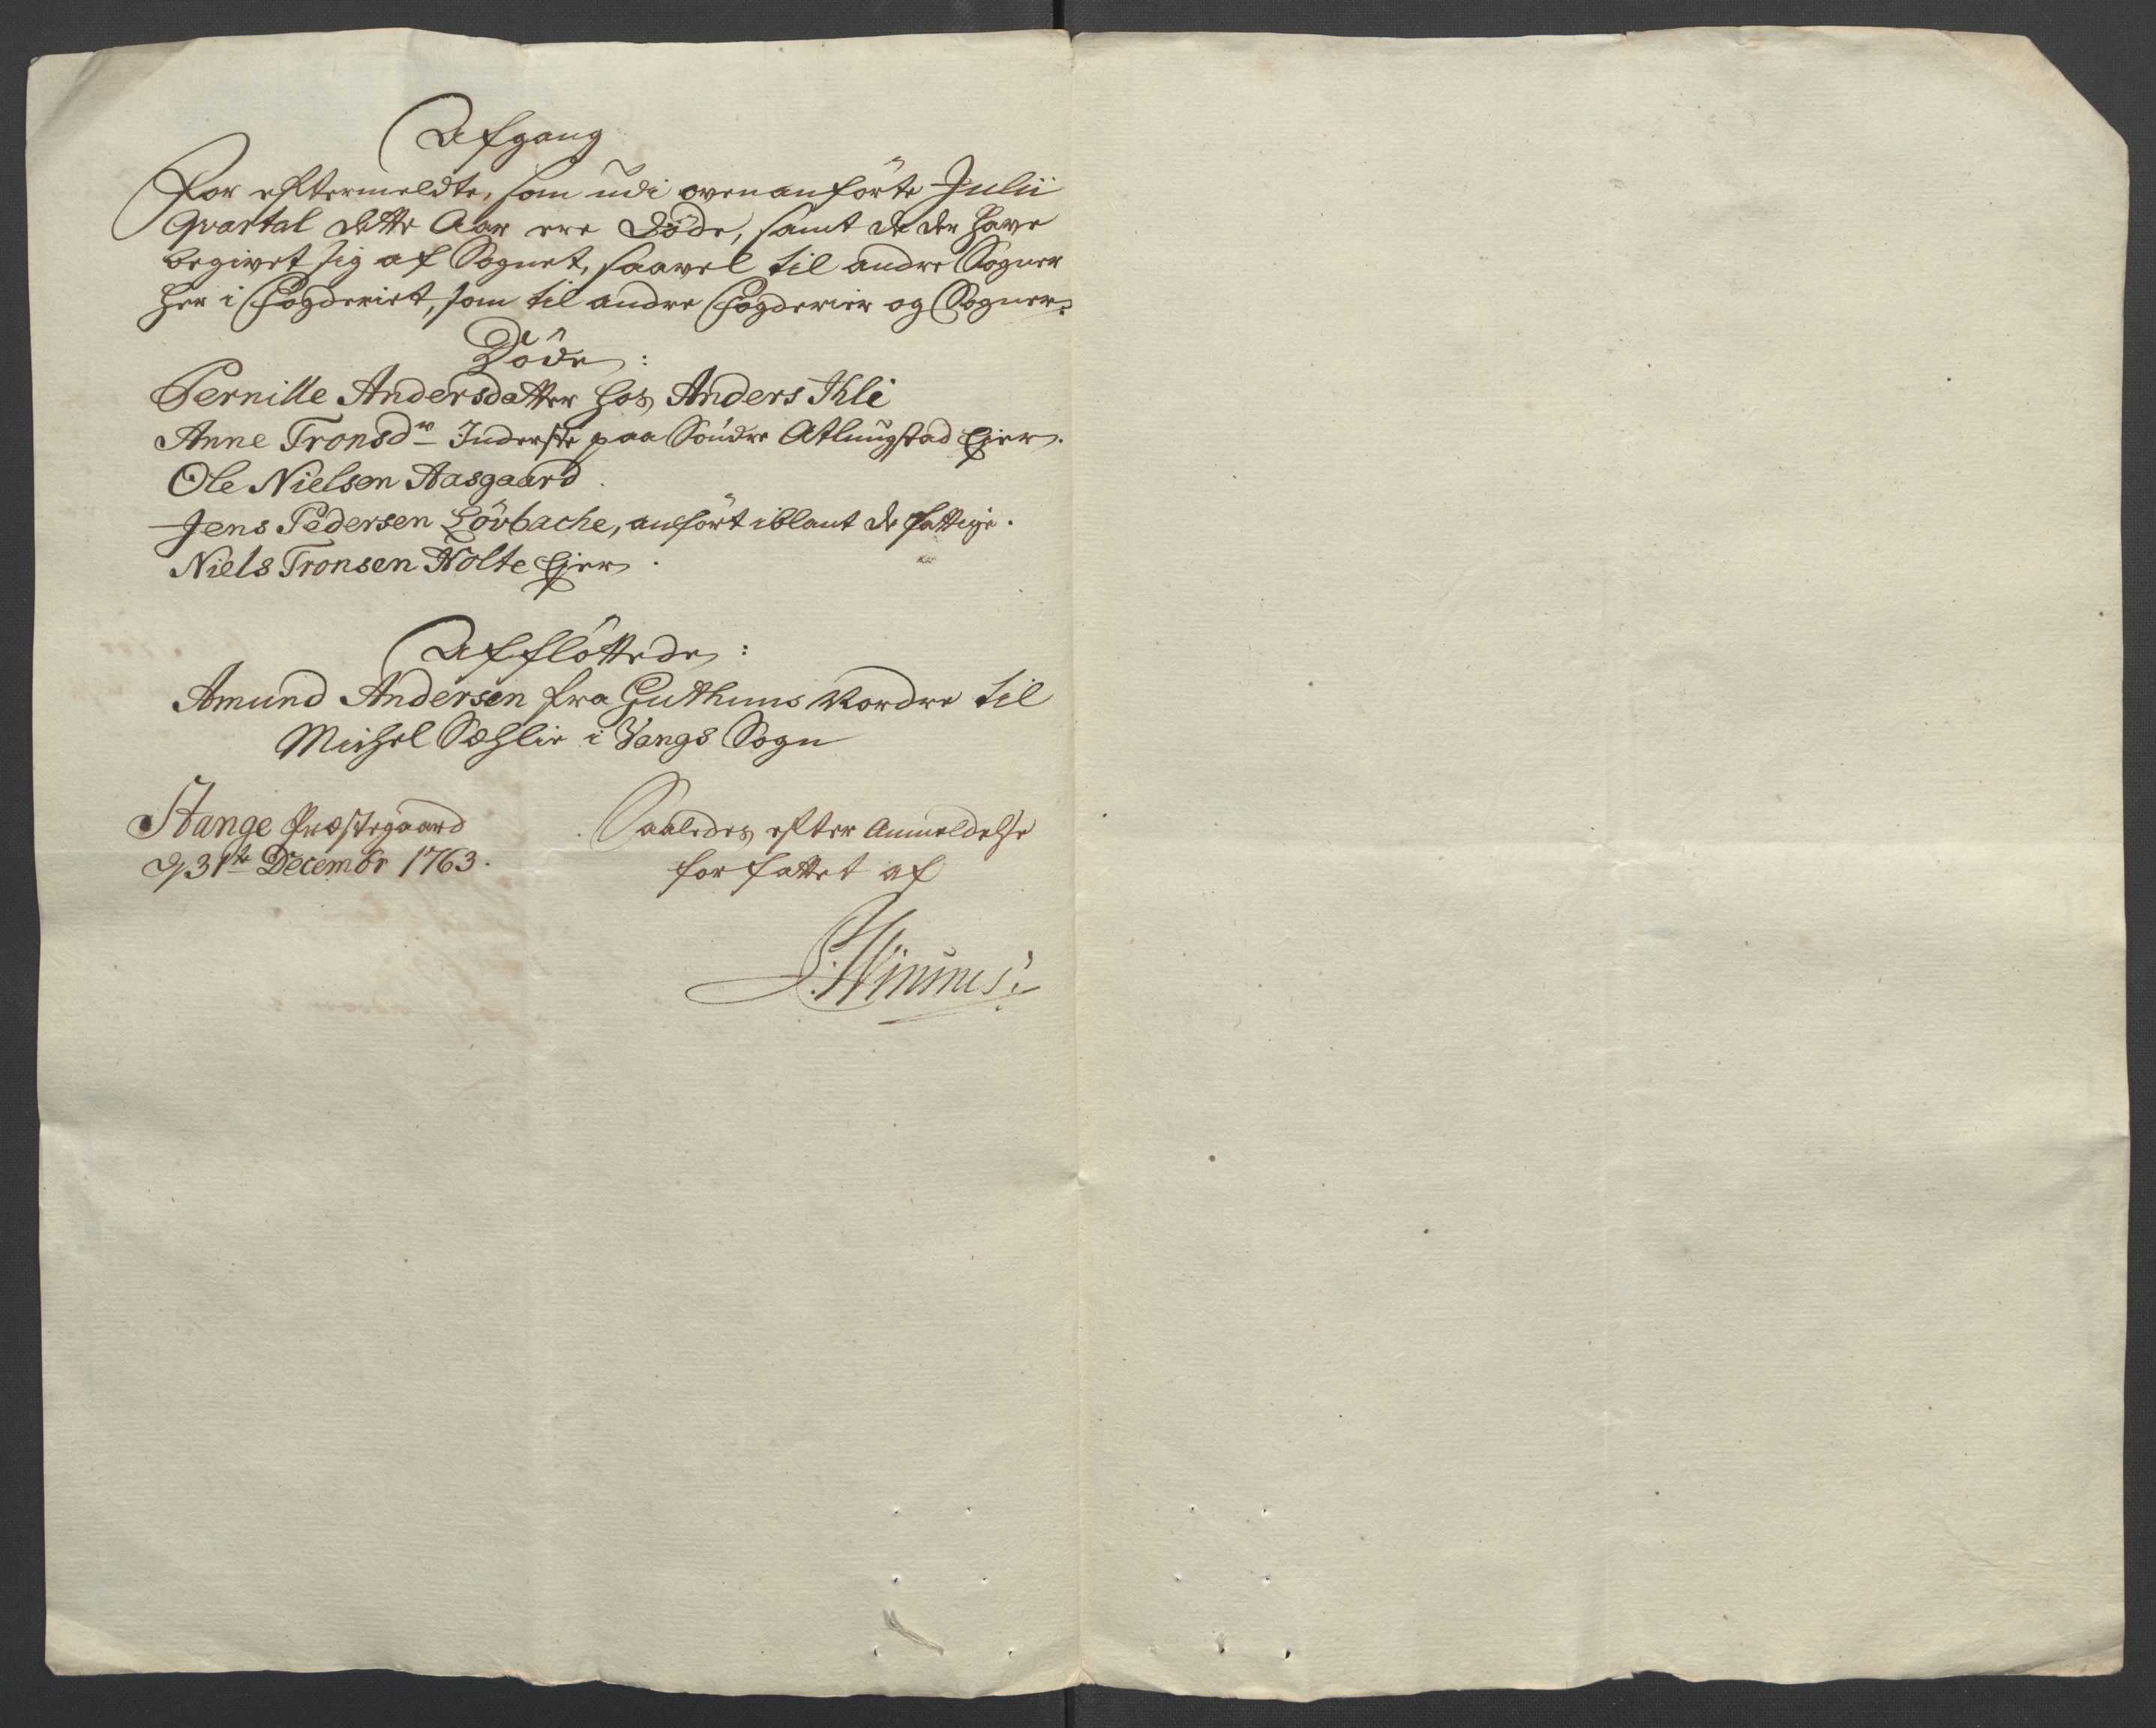 Afgang
For eftermeldte, som udi ovenanförte Julii
Qvartal dette Aar ere Döde, samt de der have
begivet sig af Sognet, saavel til andre Sogner
her i Fogderiet, som til andre Fogderier og Sogner.
Döde:
Pernille Andersdatter hos Anders Kli
Anne Tronsdr Inderste paa Söndre Atlungstad Ejer.
Ole Nielsen Aasgaard.
Jens Pedersen Lövbache, anfört iblant de fattige.
Niels Tronsen Holte Ejer.
Afflöttede:
Amund Andersen fra Guthuus Nordre til
Michel Sæhlie i Vangs Sogn
Stange Præstegaard
d 31te Decembr 1763.
Saaledes efter Anmeldelse
forfattet af